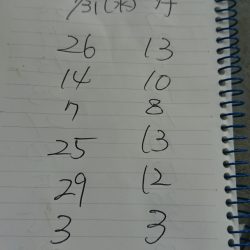 26 13
14 10
7 8
25 13
29 12
3 3